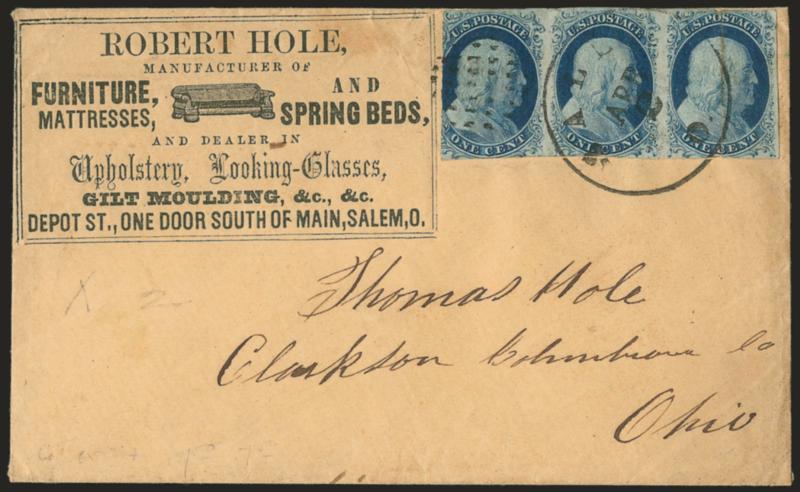 ROBERT HOLE,
MANUFACTURER OF
FURNITURE, AND
MATTRESSES, SPRING BEDS,
AND DEALER IN
Upholstery, Looking-Glasses,
GILT MOULDING, &c., &c.
DEPOT ST., ONE DOOR SOUTH OF MAIN, SALEM, O.
U.S. POSTAGE U.S. POSTAGE U.S. POSTAGE
ONE CENT ONE CENT ONE CENT
SAL O.
APR
2
X 2
Thomas Hole
Clarkson Columbiana Co
Ohio